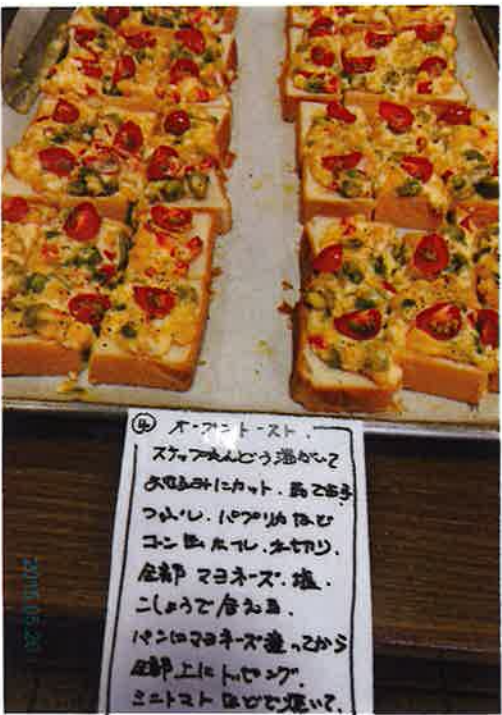 ④ オープントースト.
スナップえんどう湯がいて
お好みにカット. 茹で玉子
つぶし. パプリカなど
コーン缶ホール. 水切り.
全部 マヨネーズ. 塩.
こしょうで合える.
パンにマヨネーズ塗ってから
全部上にトッピング.
ミニトマトなどで焼いて.
2015.05.20